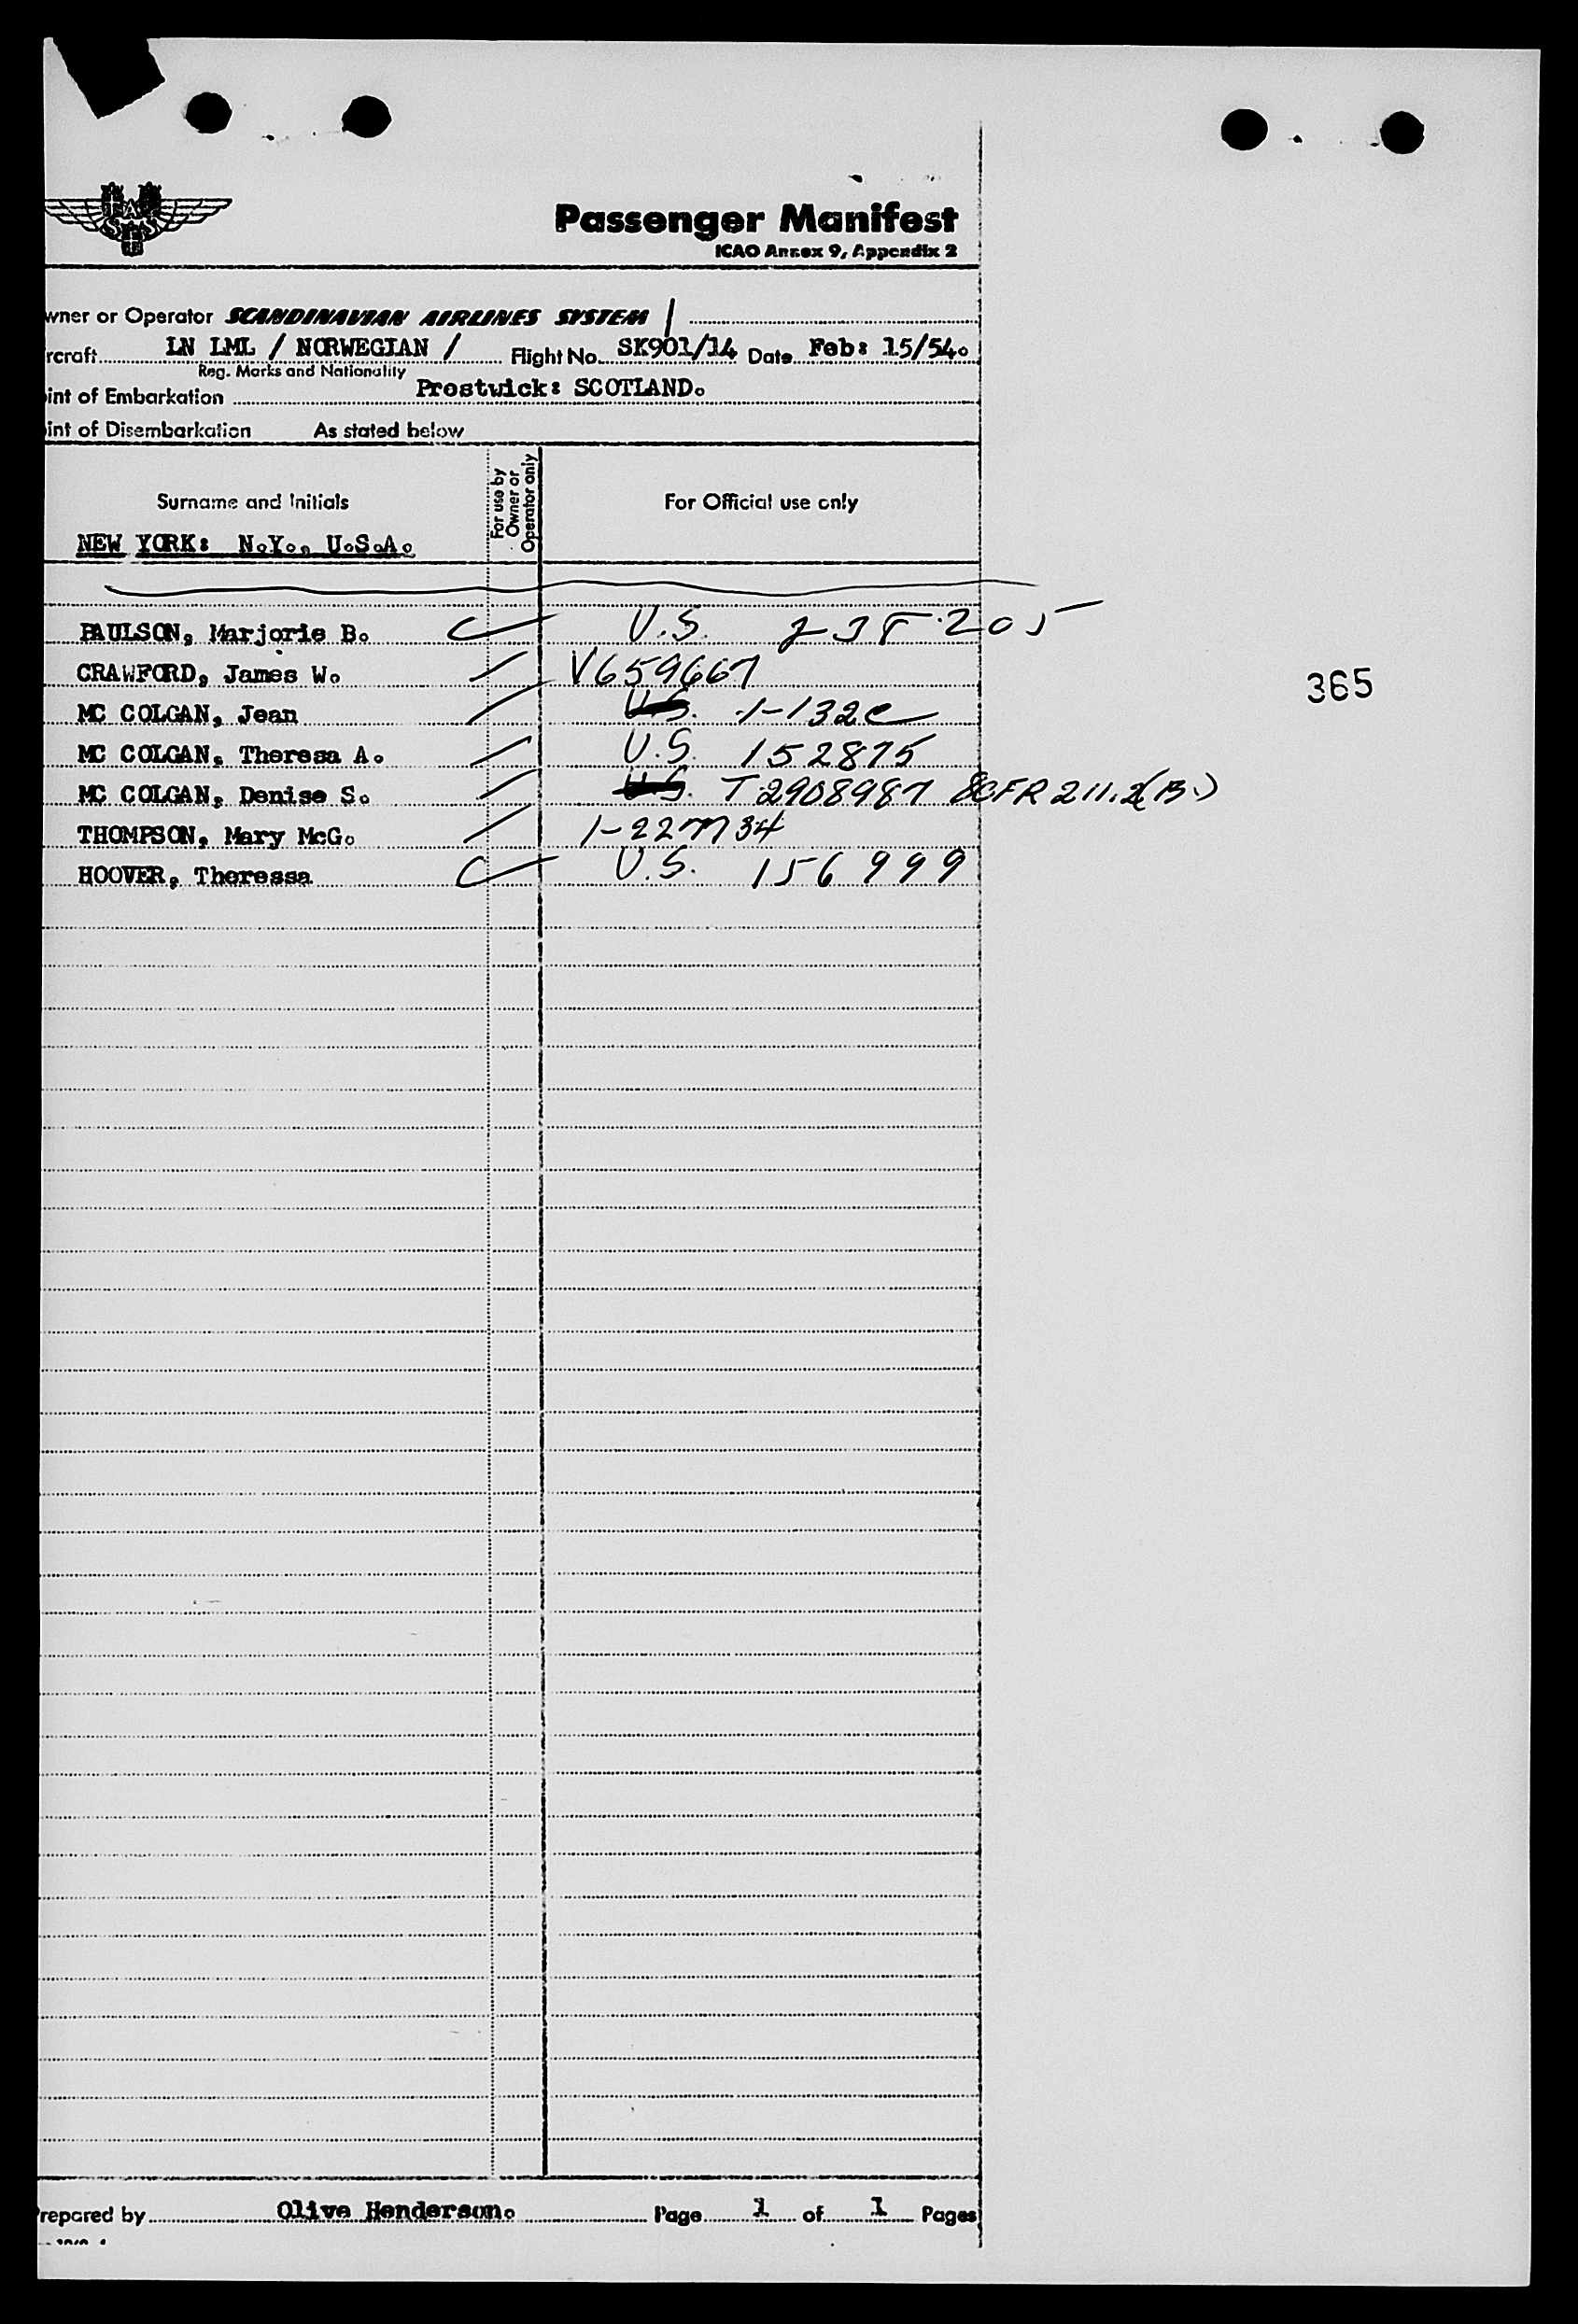 SAS
Passenger Manifest
ICAO Annex 9, Appendix 2
wner or Operator SCANDINAVIAN AIRLINES SYSTEM /
rcraft LN LML / NORWEGIAN / Flight No. SK901/14 Date Feb: 15/54.
Reg. Marks and Nationality
int of Embarkation Prestwick: SCOTLAND.
int of Disembarkation As stated below
Surname and Initials
For use by Owner or Operator only
For Official use only
NEW YORK: N.Y., U.S.A.
PAULSON, Marjorie B. U.S. 205
CRAWFORD, James W. V659667
365
MC COLGAN, Jean U.S. 1-132
MC COLGAN, Theresa A. U.S. 152875
MC COLGAN, Denise S. U.S. T 2908987 8CFR 211.2(B.)
THOMPSON, Mary McG.
HOOVER, Theressa U.S. 156999
repared by Olive Henderson. Page 1 of 1 Pages